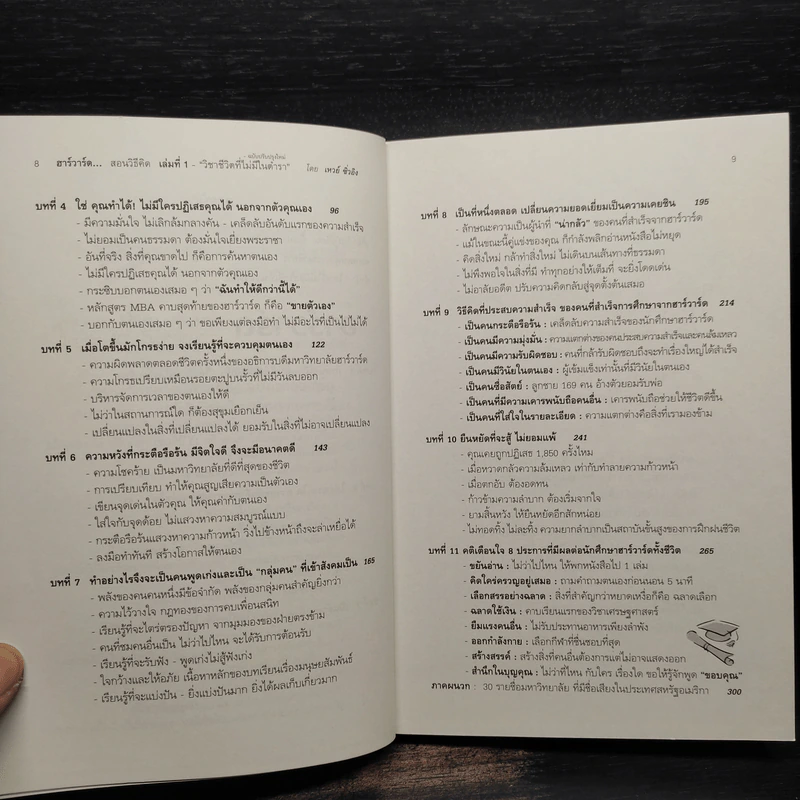 8 ฮาร์วาร์ด... สอนวิธีคิด เล่มที่ 1 - "วิชาชีวิตที่ไม่มีในตำรา" โดย เหวย์ ซิ่วอิง
- ฉบับปรับปรุงใหม่
บทที่ 4 ใช่ คุณทำได้! ไม่มีใครปฏิเสธคุณได้ นอกจากตัวคุณเอง 96
- มีความมั่นใจ ไม่เลิกล้มกลางคัน - เคล็ดลับอันดับแรกของความสำเร็จ
- ไม่ยอมเป็นคนธรรมดา ต้องมั่นใจเยี่ยงพระราชา
- อันที่จริง สิ่งที่คุณขาดไป ก็คือการค้นหาตนเอง
- ไม่มีใครปฏิเสธคุณได้ นอกจากตัวคุณเอง
- กระซิบบอกตนเองเสมอ ๆ ว่า "ฉันทำให้ดีกว่านี้ได้"
- หลักสูตร MBA คาบสุดท้ายของฮาร์วาร์ด ก็คือ "ขายตัวเอง"
- บอกกับตนเองเสมอ ๆ ว่า ขอเพียงแต่ลงมือทำ ไม่มีอะไรที่เป็นไปไม่ได้
บทที่ 5 เมื่อโตขึ้นมักโกรธง่าย จงเรียนรู้ที่จะควบคุมตนเอง 122
- ความผิดพลาดตลอดชีวิตครั้งหนึ่งของอธิการบดีมหาวิทยาลัยฮาร์วาร์ด
- ความโกรธเปรียบเหมือนรอยตะปูบนรั้วที่ไม่มีวันลบออก
- บริหารจัดการเวลาของตนเองให้ดี
- ไม่ว่าในสถานการณ์ใด ก็ต้องสุขุมเยือกเย็น
- เปลี่ยนแปลงในสิ่งที่เปลี่ยนแปลงได้ ยอมรับในสิ่งที่ไม่อาจเปลี่ยนแปลง
บทที่ 6 ความหวังที่กระตือรือร้น มีจิตใจดี จึงจะมีอนาคตดี 143
- ความโชคร้าย เป็นมหาวิทยาลัยที่ดีที่สุดของชีวิต
- การเปรียบเทียบ ทำให้คุณสูญเสียความเป็นตัวเอง
- เขียนจุดเด่นในตัวคุณ ให้คุณค่ากับตนเอง
- ใส่ใจกับจุดด้อย ไม่แสวงหาความสมบูรณ์แบบ
- กระตือรือร้นแสวงหาความก้าวหน้า วิ่งไปข้างหน้าถึงจะล่าเหยื่อได้
- ลงมือทำทันที สร้างโอกาสให้ตนเอง
บทที่ 7 ทำอย่างไรจึงจะเป็นคนพูดเก่งและเป็น "กลุ่มคน" ที่เข้าสังคมเป็น 165
- พลังของคนคนหนึ่งมีข้อจำกัด พลังของกลุ่มคนสำคัญยิ่งกว่า
- ความไว้วางใจ กฎทองของการคบเพื่อนสนิท
- เรียนรู้ที่จะไตร่ตรองปัญหา จากมุมมองของฝ่ายตรงข้าม
- คนที่ชมคนอื่นเป็น ไม่ว่าไปไหน จะได้รับการต้อนรับ
- เรียนรู้ที่จะรับฟัง - พูดเก่งไม่สู้ฟังเก่ง
- ใจกว้างและให้อภัย เนื้อหาหลักของบทเรียนเรื่องมนุษยสัมพันธ์
- เรียนรู้ที่จะแบ่งปัน - ยิ่งแบ่งปันมาก ยิ่งได้ผลเก็บเกี่ยวมาก
9
บทที่ 8 เป็นที่หนึ่งตลอด เปลี่ยนความยอดเยี่ยมเป็นความเคยชิน 195
- ลักษณะความเป็นผู้นำที่ "น่ากลัว" ของคนที่สำเร็จจากฮาร์วาร์ด
- แม้ในขณะนี้คู่แข่งของคุณ ก็กำลังพลิกอ่านหนังสือไม่หยุด
- คิดสิ่งใหม่ กล้าทำสิ่งใหม่ ไม่เดินบนเส้นทางที่ธรรมดา
- ไม่พึงพอใจในสิ่งที่มี ทำทุกอย่างให้เต็มที่ จะยิ่งโดดเด่น
- ไม่อาลัยอดีต ปรับความคิดกลับสู่จุดตั้งต้นเสมอ
บทที่ 9 วิธีคิดที่ประสบความสำเร็จ ของคนที่สำเร็จการศึกษาจากฮาร์วาร์ด 214
- เป็นคนกระตือรือร้น : เคล็ดลับความสำเร็จของนักศึกษาฮาร์วาร์ด
- เป็นคนมีความมุ่งมั่น : ความแตกต่างของคนประสบความสำเร็จและคนล้มเหลว
- เป็นคนมีความรับผิดชอบ : คนที่กล้ารับผิดชอบถึงจะทำเรื่องใหญ่ได้สำเร็จ
- เป็นคนมีวินัยในตนเอง : ผู้เข้มแข็งเท่านั้นที่มีวินัยในตนเอง
- เป็นคนซื่อสัตย์ : ลูกชาย 169 คน อ้างตัวยอมรับพ่อ
- เป็นคนที่มีความเคารพนับถือคนอื่น : เคารพนับถือช่วยให้ชีวิตดีขึ้น
- เป็นคนที่ใส่ใจในรายละเอียด : ความแตกต่างคือสิ่งที่เรามองข้าม
บทที่ 10 ยืนหยัดที่จะสู้ ไม่ยอมแพ้ 241
- คุณเคยถูกปฏิเสธ 1,850 ครั้งไหม
- เมื่อหวาดกลัวความล้มเหลว เท่ากับทำลายความก้าวหน้า
- เมื่อตกอับ ต้องอดทน
- ก้าวข้ามความลำบาก ต้องเริ่มจากใจ
- ยามสิ้นหวัง ให้ยืนหยัดอีกสักหน่อย
- ไม่ทอดทิ้ง ไม่ละทิ้ง ความยากลำบากเป็นสถาบันชั้นสูงของการฝึกฝนชีวิต
บทที่ 11 คติเตือนใจ 8 ประการที่มีผลต่อนักศึกษาฮาร์วาร์ดทั้งชีวิต 265
- ขยันอ่าน : ไม่ว่าไปไหน ให้พกหนังสือไป 1 เล่ม
- คิดใคร่ครวญอยู่เสมอ : ถามคำถามตนเองก่อนนอน 5 นาที
- เลือกสรรอย่างฉลาด : สิ่งที่สำคัญกว่าหยาดเหงื่อก็คือ ฉลาดเลือก
- ฉลาดใช้เงิน : คาบเรียนแรกของวิชาเศรษฐศาสตร์
- ยืมแรงคนอื่น : ไม่รับประทานอาหารเพียงลำพัง
- ออกกำลังกาย : เลือกกีฬาที่ชื่นชอบที่สุด
- สร้างสรรค์ : สร้างสิ่งที่คนอื่นต้องการแต่ไม่อาจแสดงออก
- สำนึกในบุญคุณ : ไม่ว่าที่ไหน กับใคร เรื่องใด ขอให้รู้จักพูด "ขอบคุณ"
ภาคผนวก : 30 รายชื่อมหาวิทยาลัย ที่มีชื่อเสียงในประเทศสหรัฐอเมริกา 300